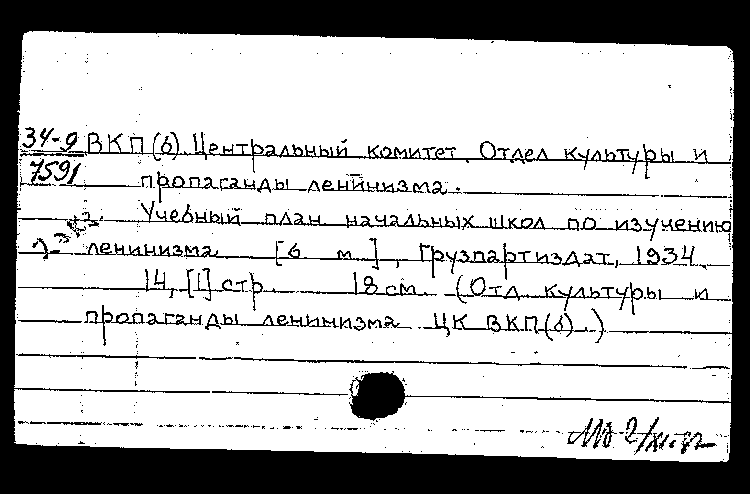 34-9 ВКП(б). Центральный комитет. Отдел культуры и
7591 пропаганды ленинизма.
Учебный план начальных школ по изучению
ленинизма [б м], Грузпартиздат, 1934.
14, [1] стр. 18 см. (Отд культуры и
пропаганды ленинизма ЦК ВКП(б).)